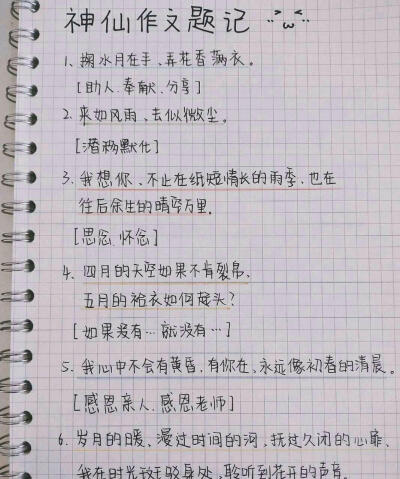 神仙作文题记
1、掬水月在手,弄花香满衣。
[助人.奉献.分享]
2、来如风雨,去似微尘。
[潜移默化]
3、我想你、不止在纸短情长的雨季,也在
往后余生的晴空万里。
[思念.怀念]
4、四月的天空如果不肯裂帛、
五月的袷衣如何起头?
[如果没有…就没有…]
5、我心中不会有黄昏,有你在,永远像初春的清晨。
[感恩亲人.感恩老师]
6、岁月的暖、漫过时间的河,抚过久闭的心扉、
我在时光斑驳身处,聆听到花开的声音。